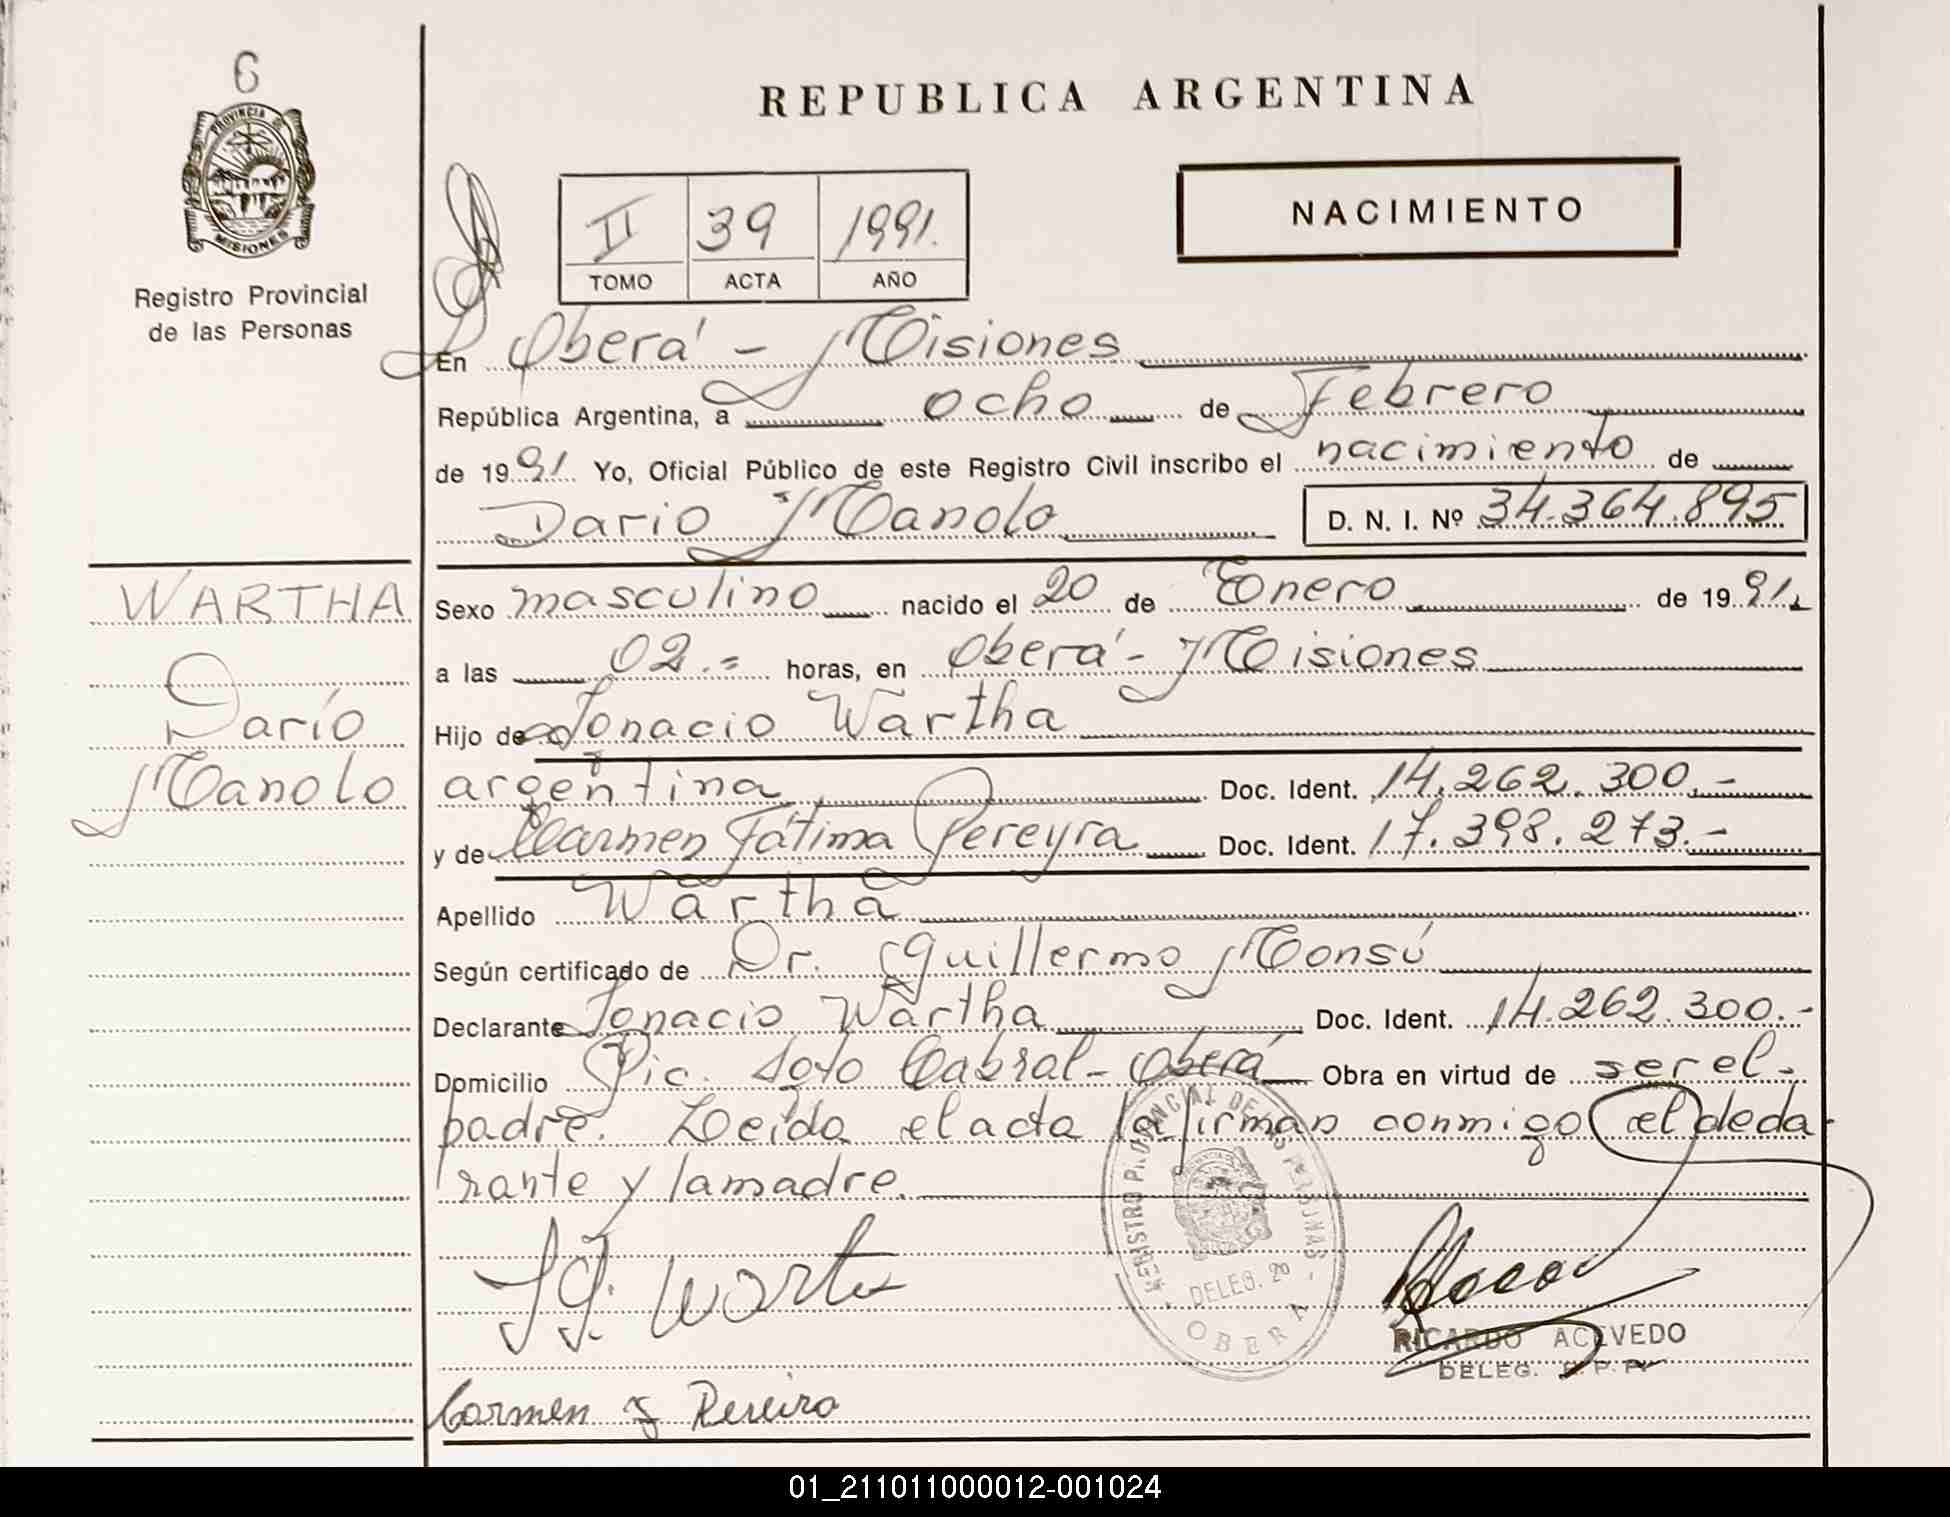 6
PROVINCIA DE
MISIONES
Registro Provincial
de las Personas
REPUBLICA ARGENTINA
II 39 1991.
TOMO ACTA AÑO
NACIMIENTO
En Oberá - Misiones
República Argentina, a ocho de Febrero
de 1991. Yo, Oficial Público de este Registro Civil inscribo el nacimiento de
Dario Manolo D. N. I. Nº 34.364.895
WARTHA
Darío
Manolo
Sexo masculino nacido el 20 de Enero de 1991.
a las 02.= horas, en Oberá - Misiones
Hijo de Ignacio Wartha
argentina Doc. Ident. 14.262.300.-
y de Carmen Fátima Pereyra Doc. Ident. 17.398.273.-
Apellido Wartha
Según certificado de Dr. Guillermo Monsú
Declarante Ignacio Wartha Doc. Ident. 14.262.300.-
Domicilio Pic. Soto Cabral - Oberá Obra en virtud de ser el
padre. Leída el acta la firman conmigo el decla-
rante y la madre.
REGISTRO PROVINCIAL DE LAS PERSONAS
DELEG. 20
OBERA
RICARDO ACEVEDO
DELEG.
Carmen F Pereira
01_211011000012-001024